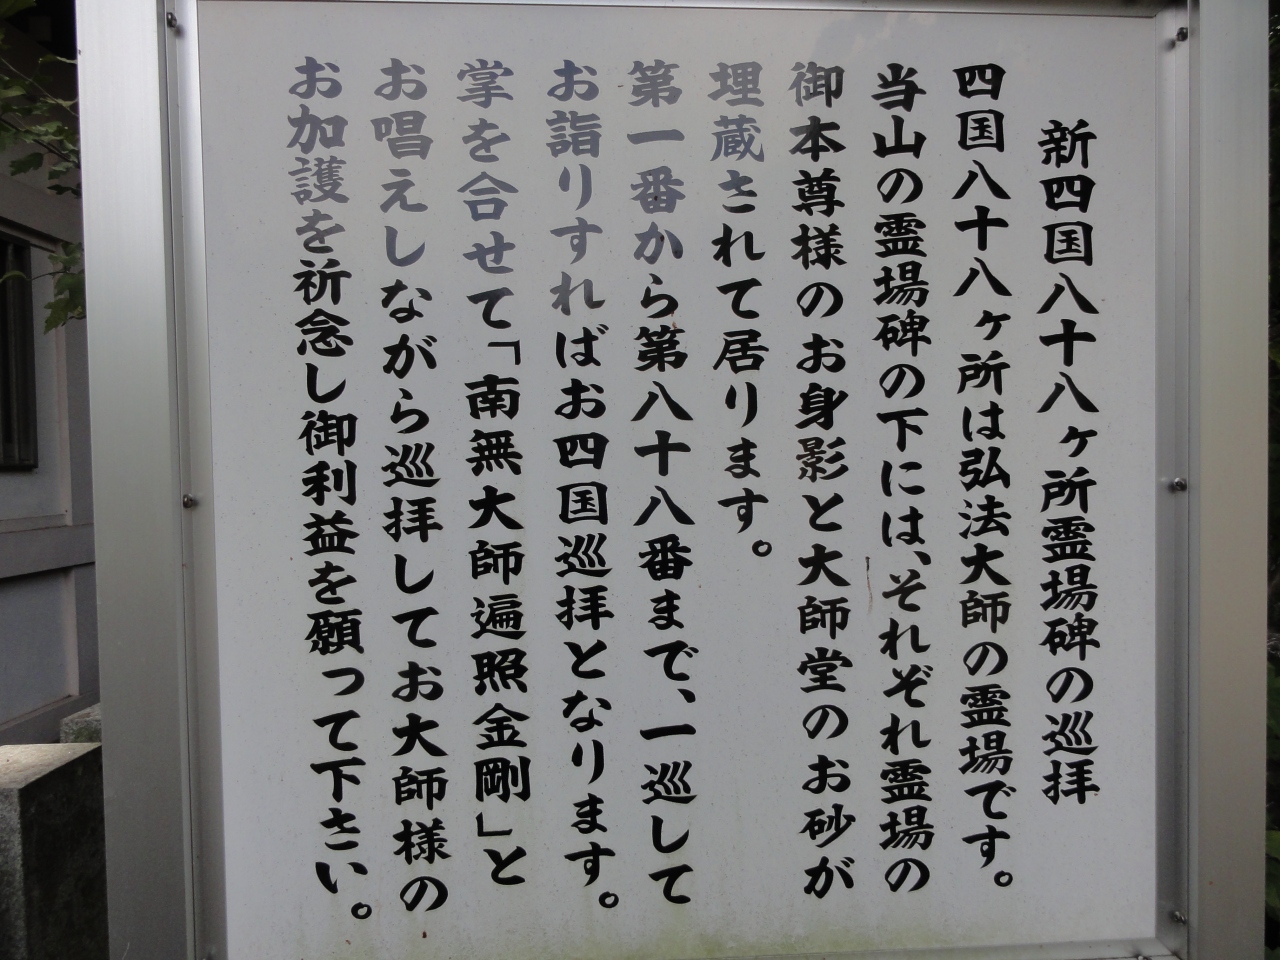 新四国八十八ヶ所霊場碑の巡拝
四国八十八ヶ所は弘法大師の霊場です。
当山の霊場碑の下には、それぞれ霊場の
御本尊様のお身影と大師堂のお砂が
埋蔵されて居ります。
第一番から第八十八番まで、一巡して
お詣りすればお四国巡拝となります。
掌を合せて「南無大師遍照金剛」と
お唱えしながら巡拝してお大師様の
お加護を祈念し御利益を願って下さい。